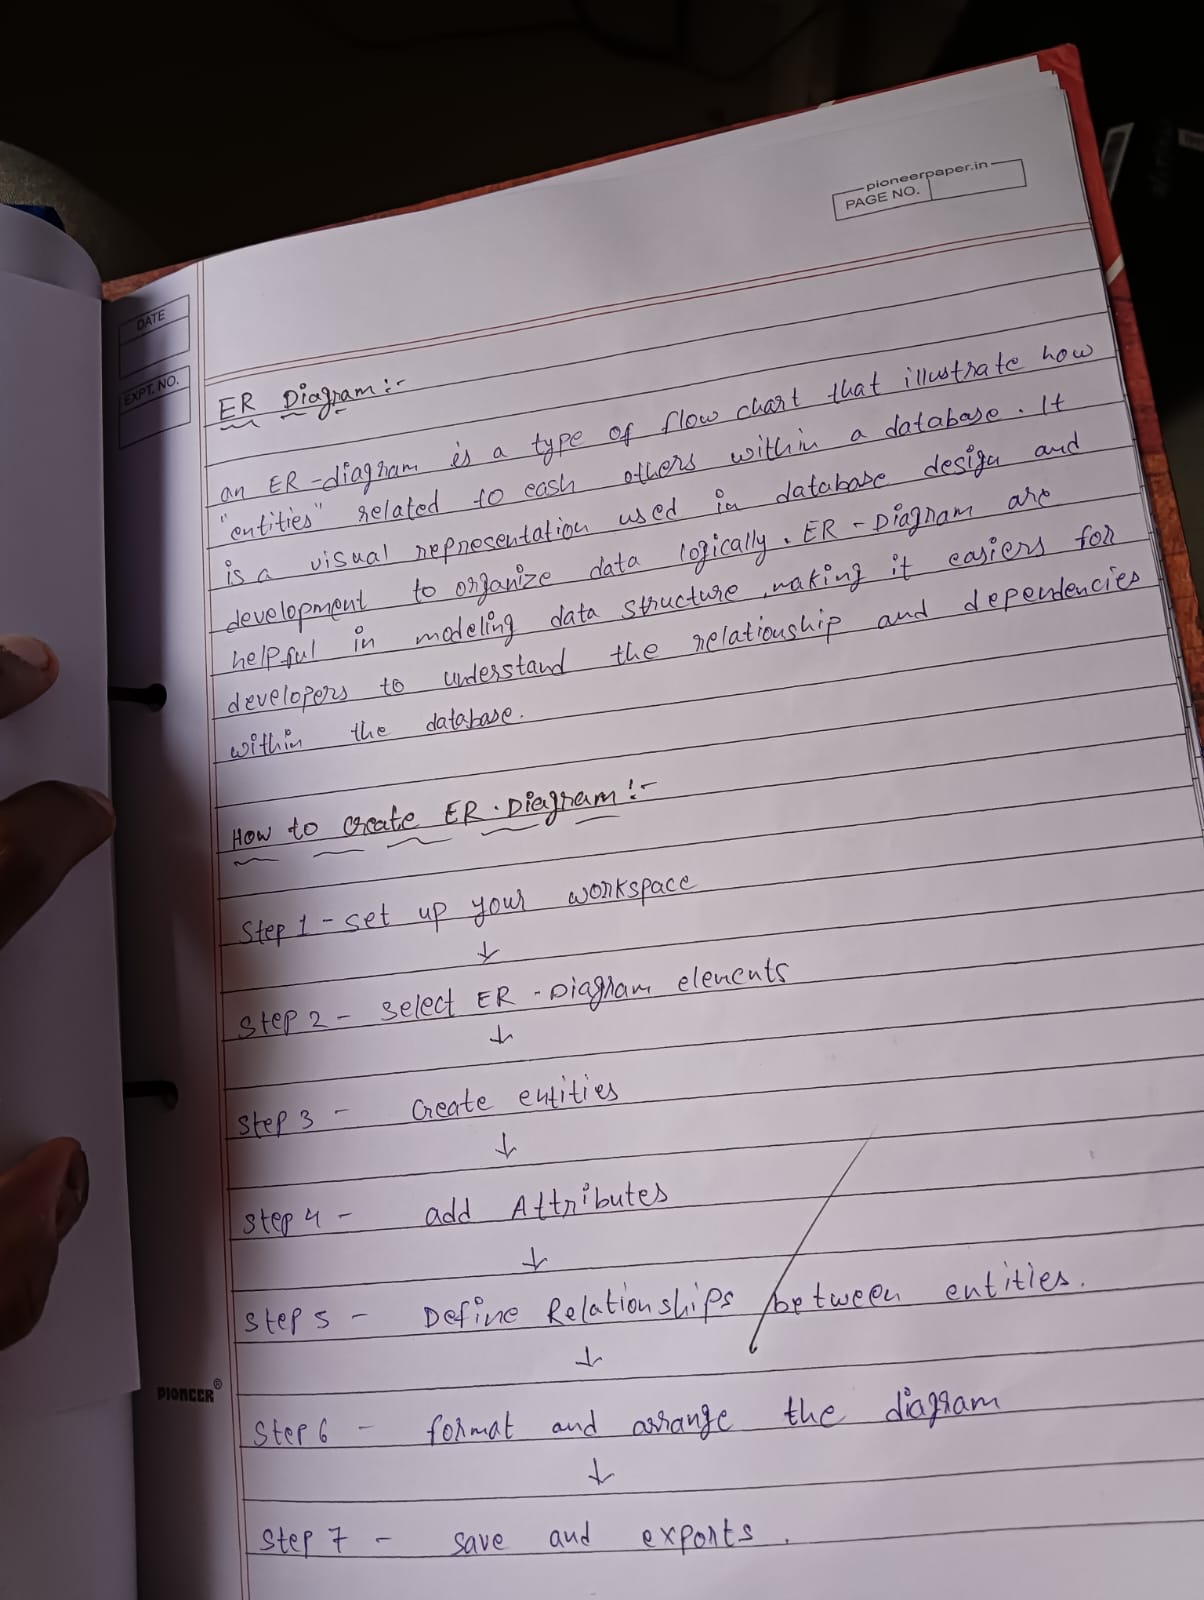 pioneerpaper.in
PAGE NO.
DATE
EXPT. NO.
ER Diagram :-
an ER-diagram is a type of flow chart that illustrate how
"entities" related to eash others within a database. It
is a visual representation used in database design and
development to organize data logically. ER-Diagram are
helpful in modeling data structure, making it easiers for
developers to understand the relationship and dependencies
within the database.
How to create ER.Diagram :-
Step 1 - set up your workspace
↓
Step 2 - select ER - Diagram elements
↓
Step 3 - Create entities
↓
Step 4 - add Attributes
↓
Step 5 - Define Relationships between entities.
↓
Step 6 - format and arrange the diagram
↓
Step 7 - save and exports.
PIONEER®